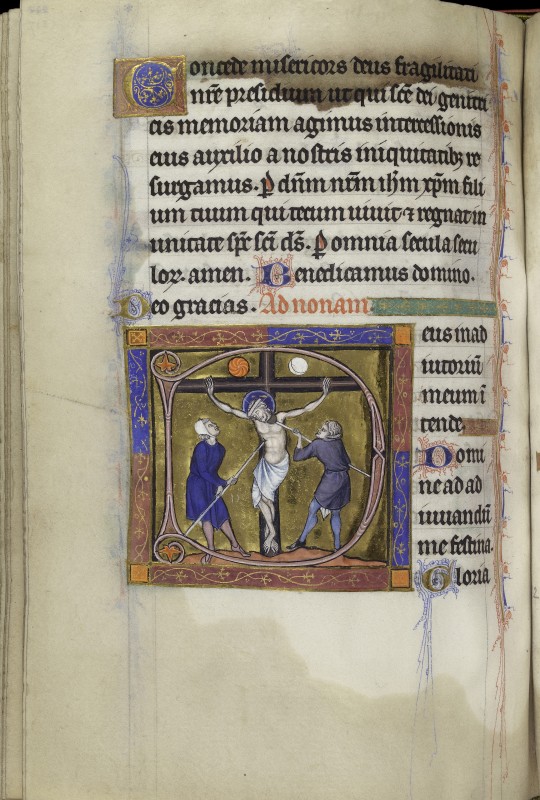 Concede misericors deus fragilitati
nr̄e presidium ut qui sc̄e dei genitri
cis memoriam agimus intercessionis
eius auxilio a nostris iniquitatibꝫ re
surgamus. ꝑ dn̄m nr̄m ih̄m xp̄m fili
um tuum qui tecum uiuit ⁊ regnat in
unitate sp̄c sc̄i ds̄. ꝑ omnia secula secu
loꝝ. amen. Benedicamus domino.
Deo gracias. Ad nonam
Deus in ad
iutoriū
meum ī
tende.
Domi
ne ad ad
iuuandū
me festina.
Gloria